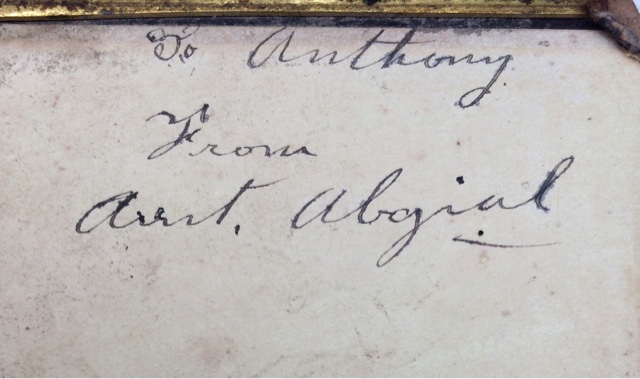 To Anthony
From
Aunt. Abgial